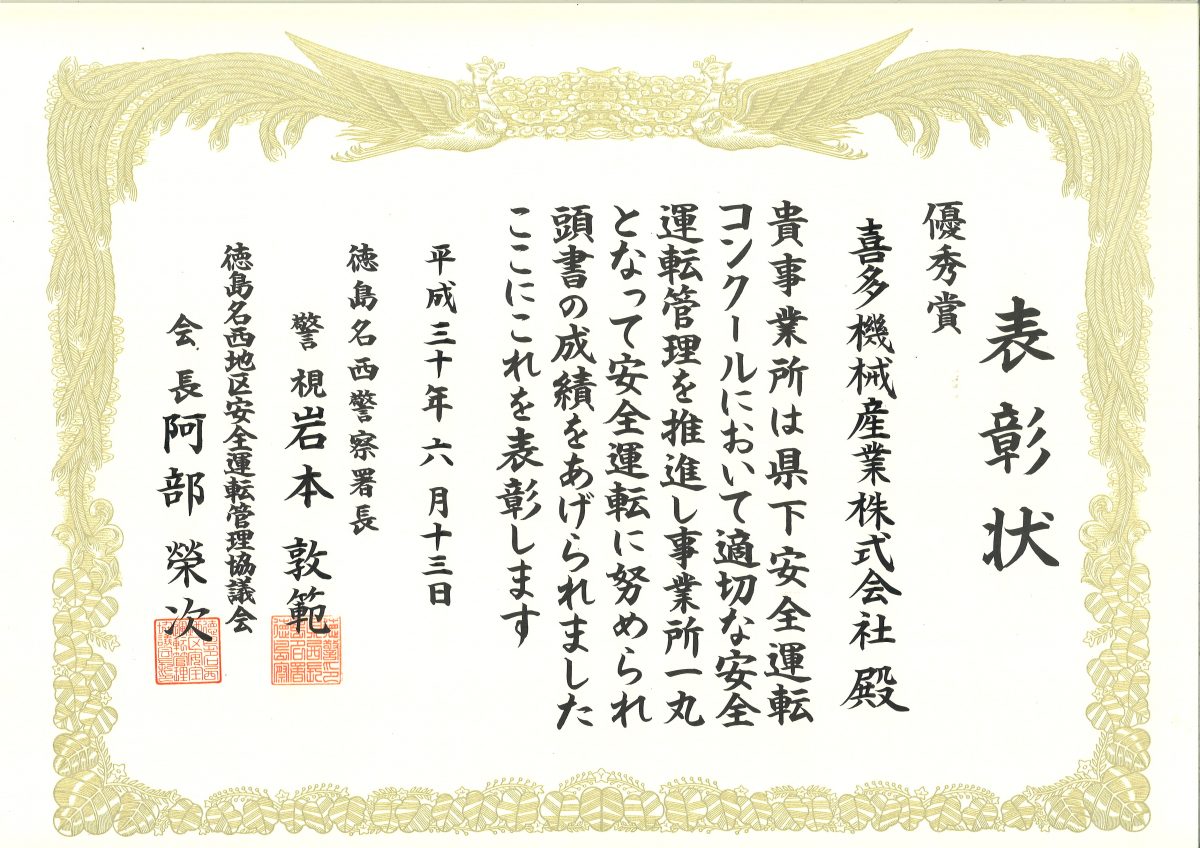 表彰状
優秀賞
喜多機械産業株式会社 殿
貴事業所は県下安全運転
コンクールにおいて適切な安全
運転管理を推進し事業所一丸
となって安全運転に努められ
頭書の成績をあげられました
ここにこれを表彰します
平成三十年六月十三日
徳島名西警察署長
警視 岩本 敦範
徳島名西地区安全運転管理協議会
会長 阿部 榮次